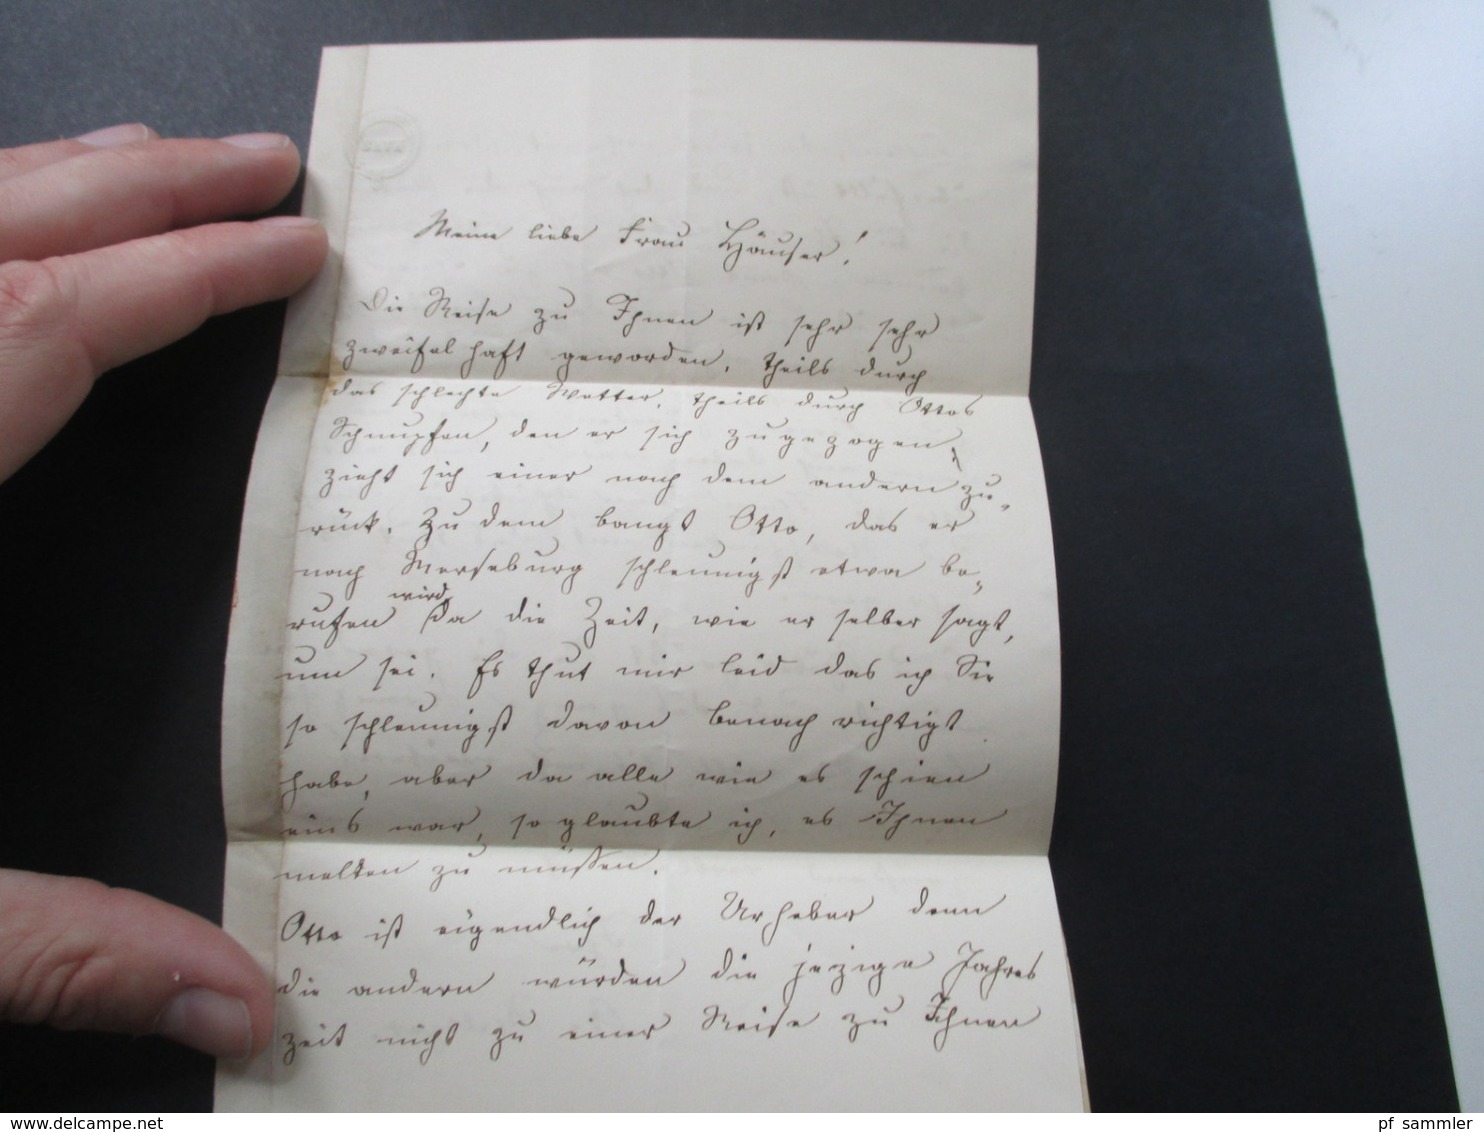 Meine liebe Frau Häuser!
Die Reise zu Ihnen ist sehr sehr
zweifelhaft geworden, theils durch
das schlechte Wetter, theils durch Ottos
Schnupfen, den er sich zugezogen,
zieht sich einer nach dem andern zu-
rück. Zu dem bangt Otto, das er
nach Merseburg schleunigst etwa be-
rufen wird Da die Zeit, wie er selber sagt,
um sei. Es thut mir leid das ich Sie
so schleunigst davon benach richtigt
habe, aber da alle wie es schien
eins war, so glaubte ich, es Ihnen
melden zu müssen.
Otto ist eigendlich der Urheber denn
die andern würden die jezige Jahres
zeit nicht zu einer Reise zu Ihnen
pf sammler
www.delcampe.net